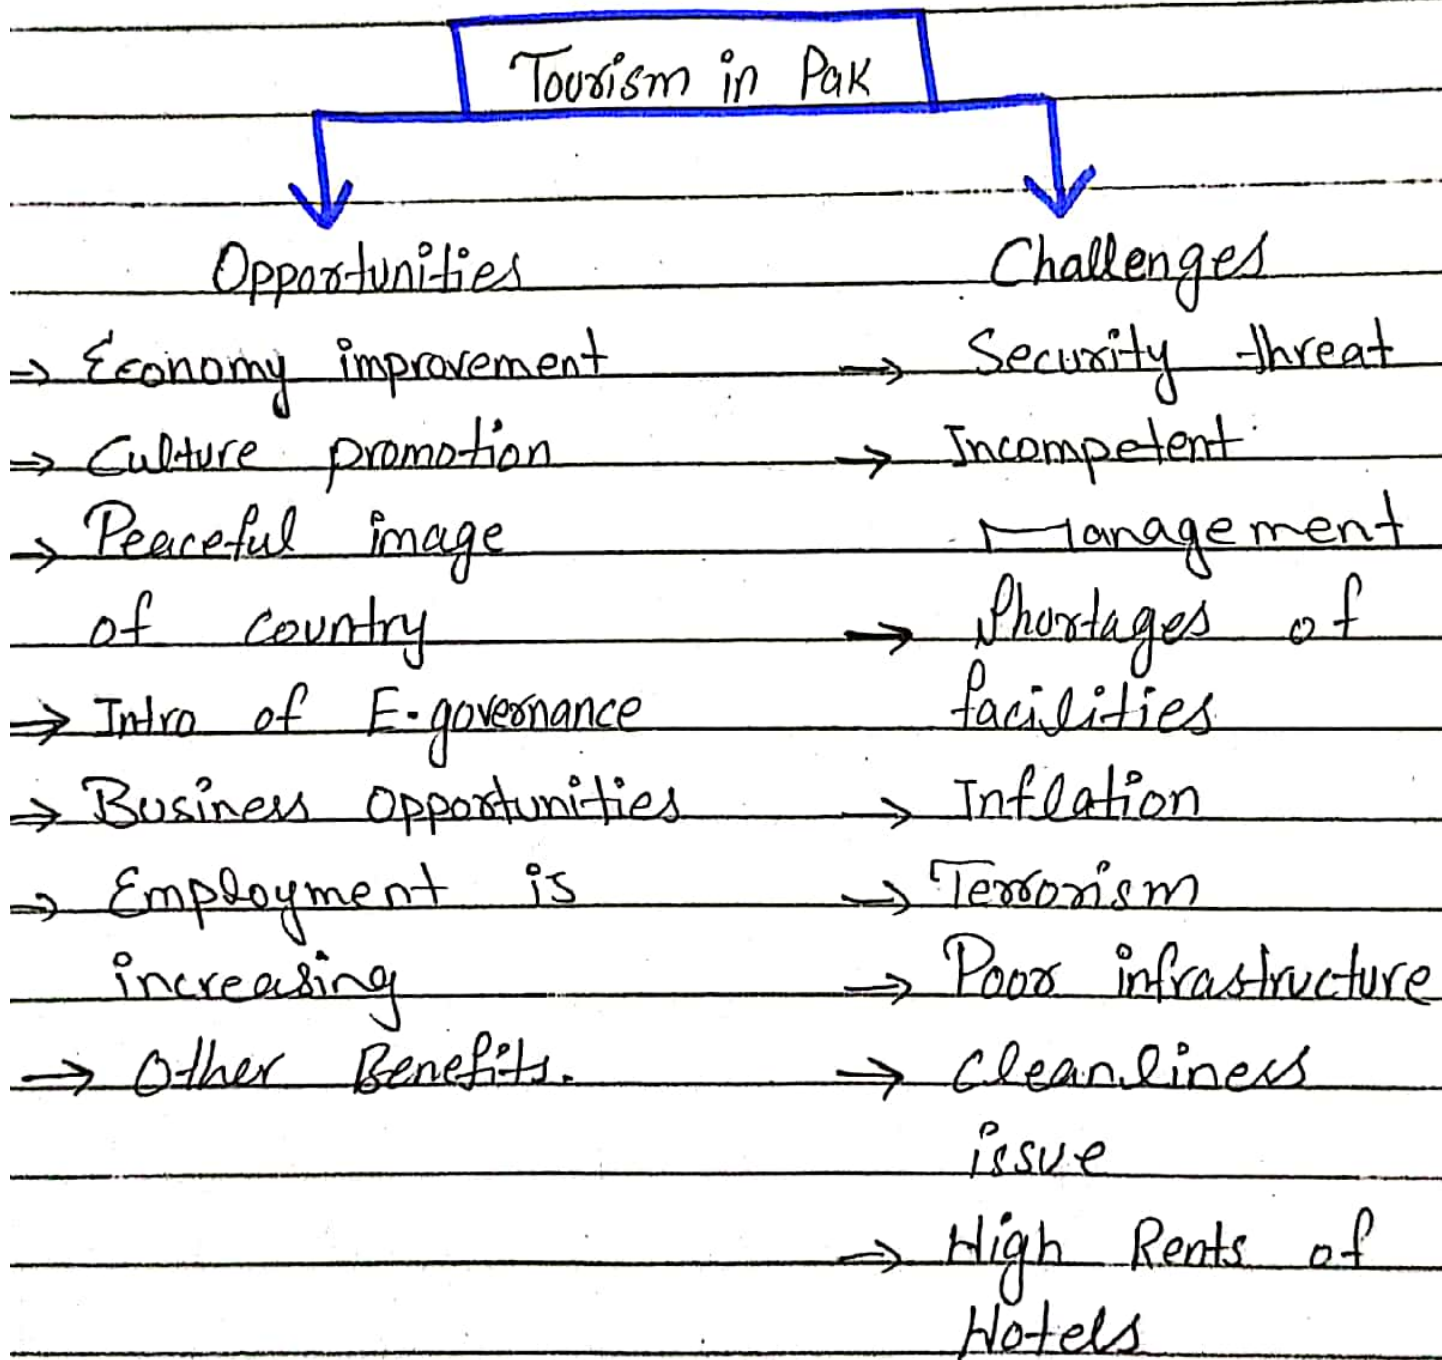 Tourism in Pak
Opportunities
⇒ Economy improvement
⇒ Culture promotion
⇒ Peaceful image
of country
⇒ Intro of E-governance
⇒ Business Opportunities
⇒ Employment is
increasing
⇒ Other Benefits.
Challenges
→ Security threat
→ Incompetent
Management
→ Shortages of
facilities
→ Inflation
→ Terrorism
→ Poor infrastructure
→ Cleanliness
issue
→ High Rents of
Hotels